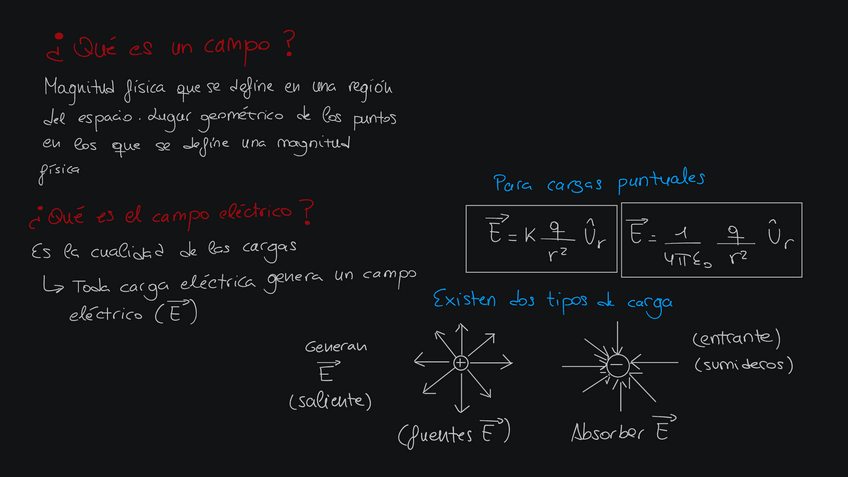 ¿Qué es un campo?
Magnitud física que se define en una región
del espacio. Lugar geométrico de los puntos
en los que se define una magnitud
física
¿Qué es el campo eléctrico?
Es la cualidad de las cargas
↳ Toda carga eléctrica genera un campo
eléctrico (E⃗)
Para cargas puntuales
E⃗ = K q/r² Û_r
E⃗ = 1/(4πε₀) q/r² Û_r
Existen dos tipos de carga
Generan
E⃗
(saliente)
+
(fuentes E⃗)
−
Absorber E⃗
(entrante)
(sumideros)